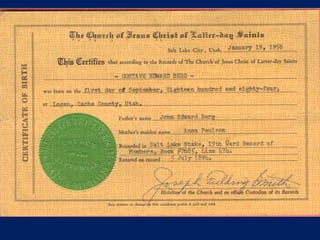 The Church of Jesus Christ of Latter-day Saints
Salt Lake City, Utah, January 19, 1956
This Certifies that according to the Records of The Church of Jesus Christ of Latter-day Saints
- GUSTAVE EDWARD BERG -
was born on the first day of September, Eighteen hundred and eighty-four,
at Logan, Cache County, Utah.
Father's name John Edward Berg
Mother's maiden name Anna Poulson
Recorded in Salt Lake Stake, 19th Ward Record of
Members, Book #7685, Line 474.
Entered on record 5 July 1894.
Joseph Fielding Smith
Historian of the Church and ex officio Custodian of its Records
Any erasure or change in this certificate makes it null and void.
CERTIFICATE OF BIRTH